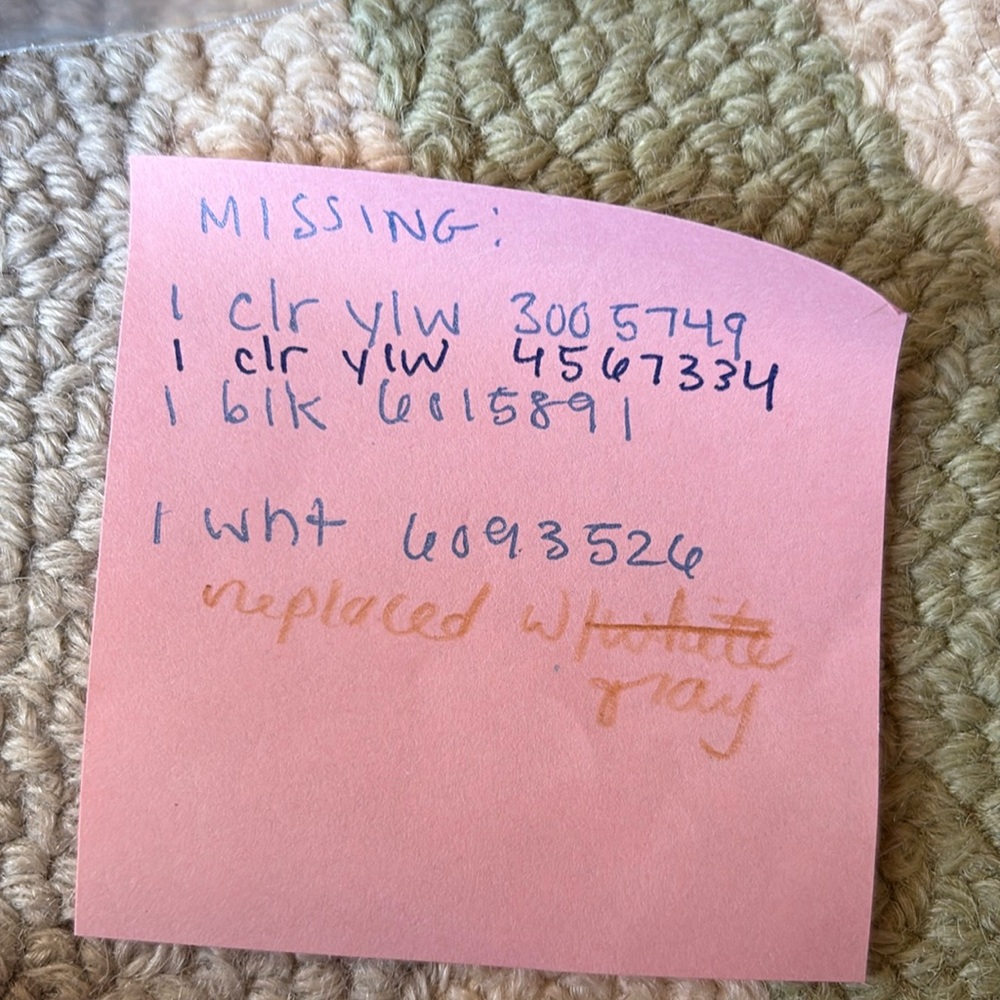 MISSING:
1 clr ylw 3005749
1 clr ylw 4567334
1 blk 6015891
1 wht 6093526
replaced w/ white
gray